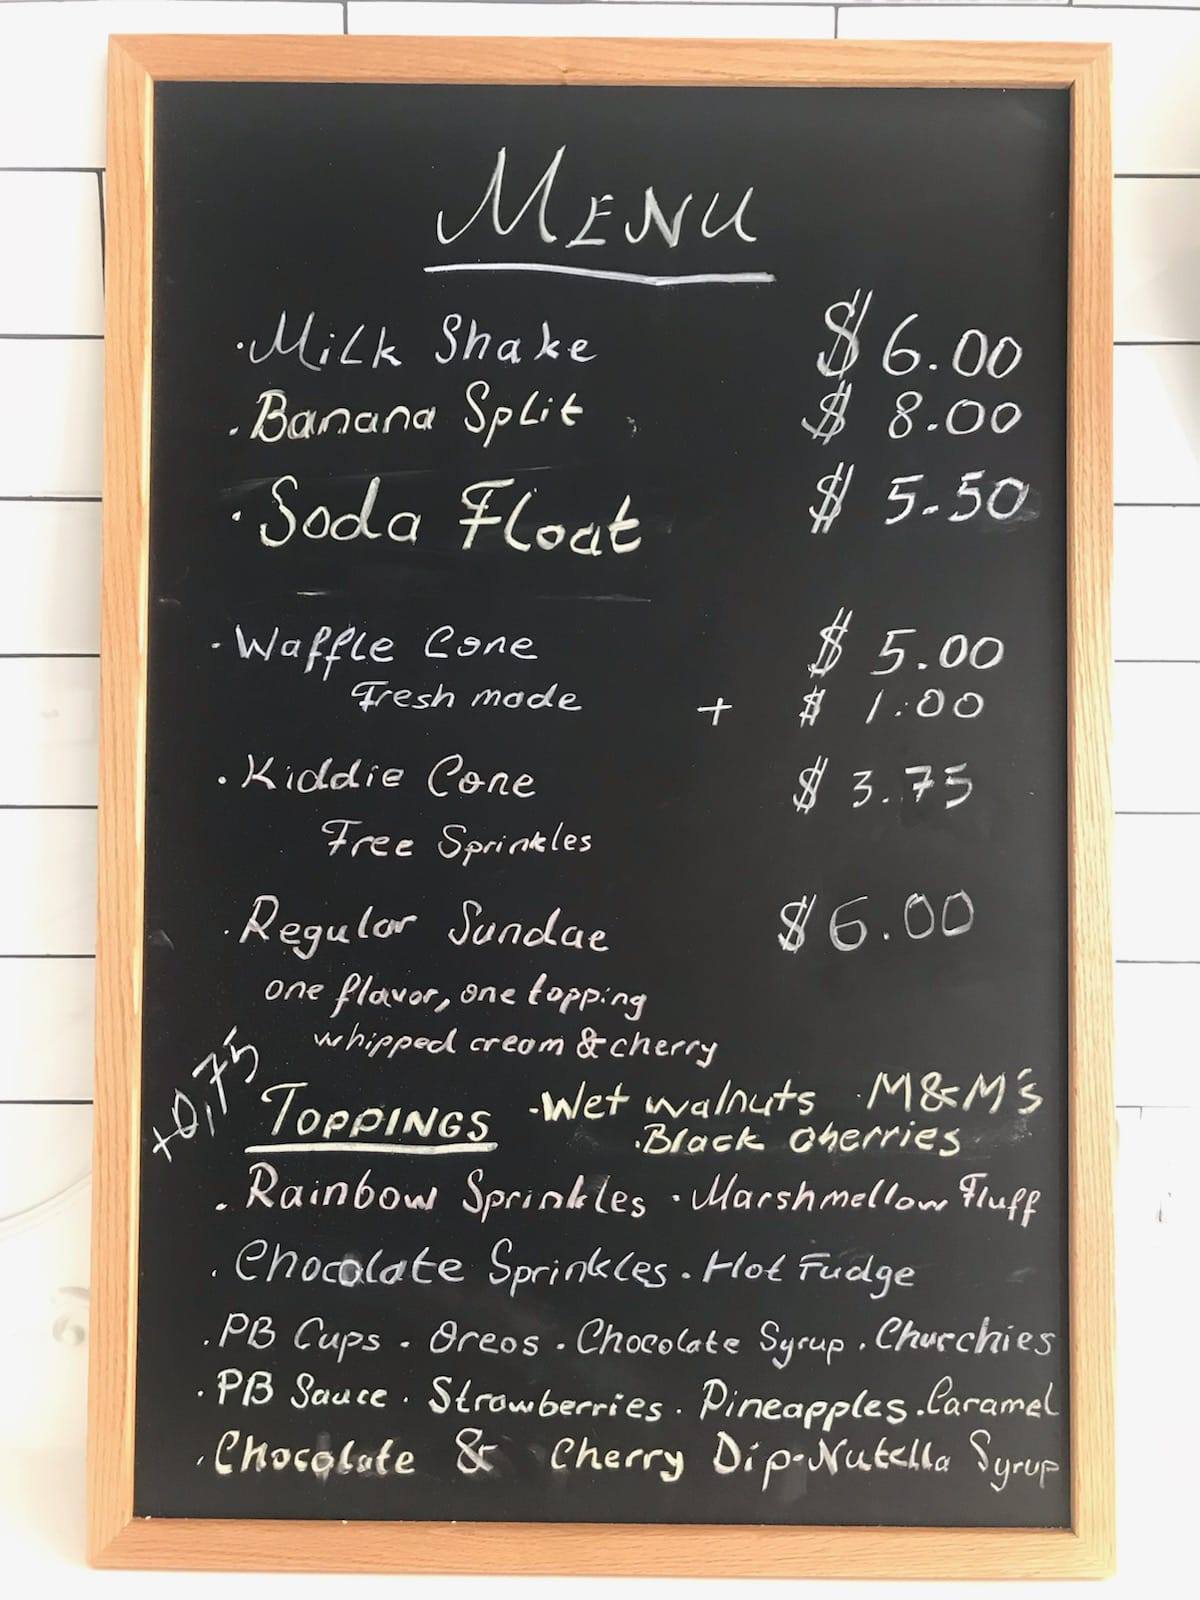 MENU
·Milk Shake $6.00
·Banana Split $ 8.00
·Soda Float $ 5.50
·Waffle Cone $ 5.00
Fresh made + $ 1.00
·Kiddie Cone $ 3.75
Free Sprinkles
·Regular Sundae $6.00
one flavor, one topping
whipped cream & cherry
+0,75
TOPPINGS ·Wet walnuts ·M&M's
·Black cherries
·Rainbow Sprinkles ·Marshmellow Fluff
·Chocolate Sprinkles ·Hot Fudge
·PB Cups ·Oreos ·Chocolate Syrup ·Churchies
·PB Sauce ·Strawberries ·Pineapples ·Caramel
·Chocolate & Cherry Dip-Nutella Syrup